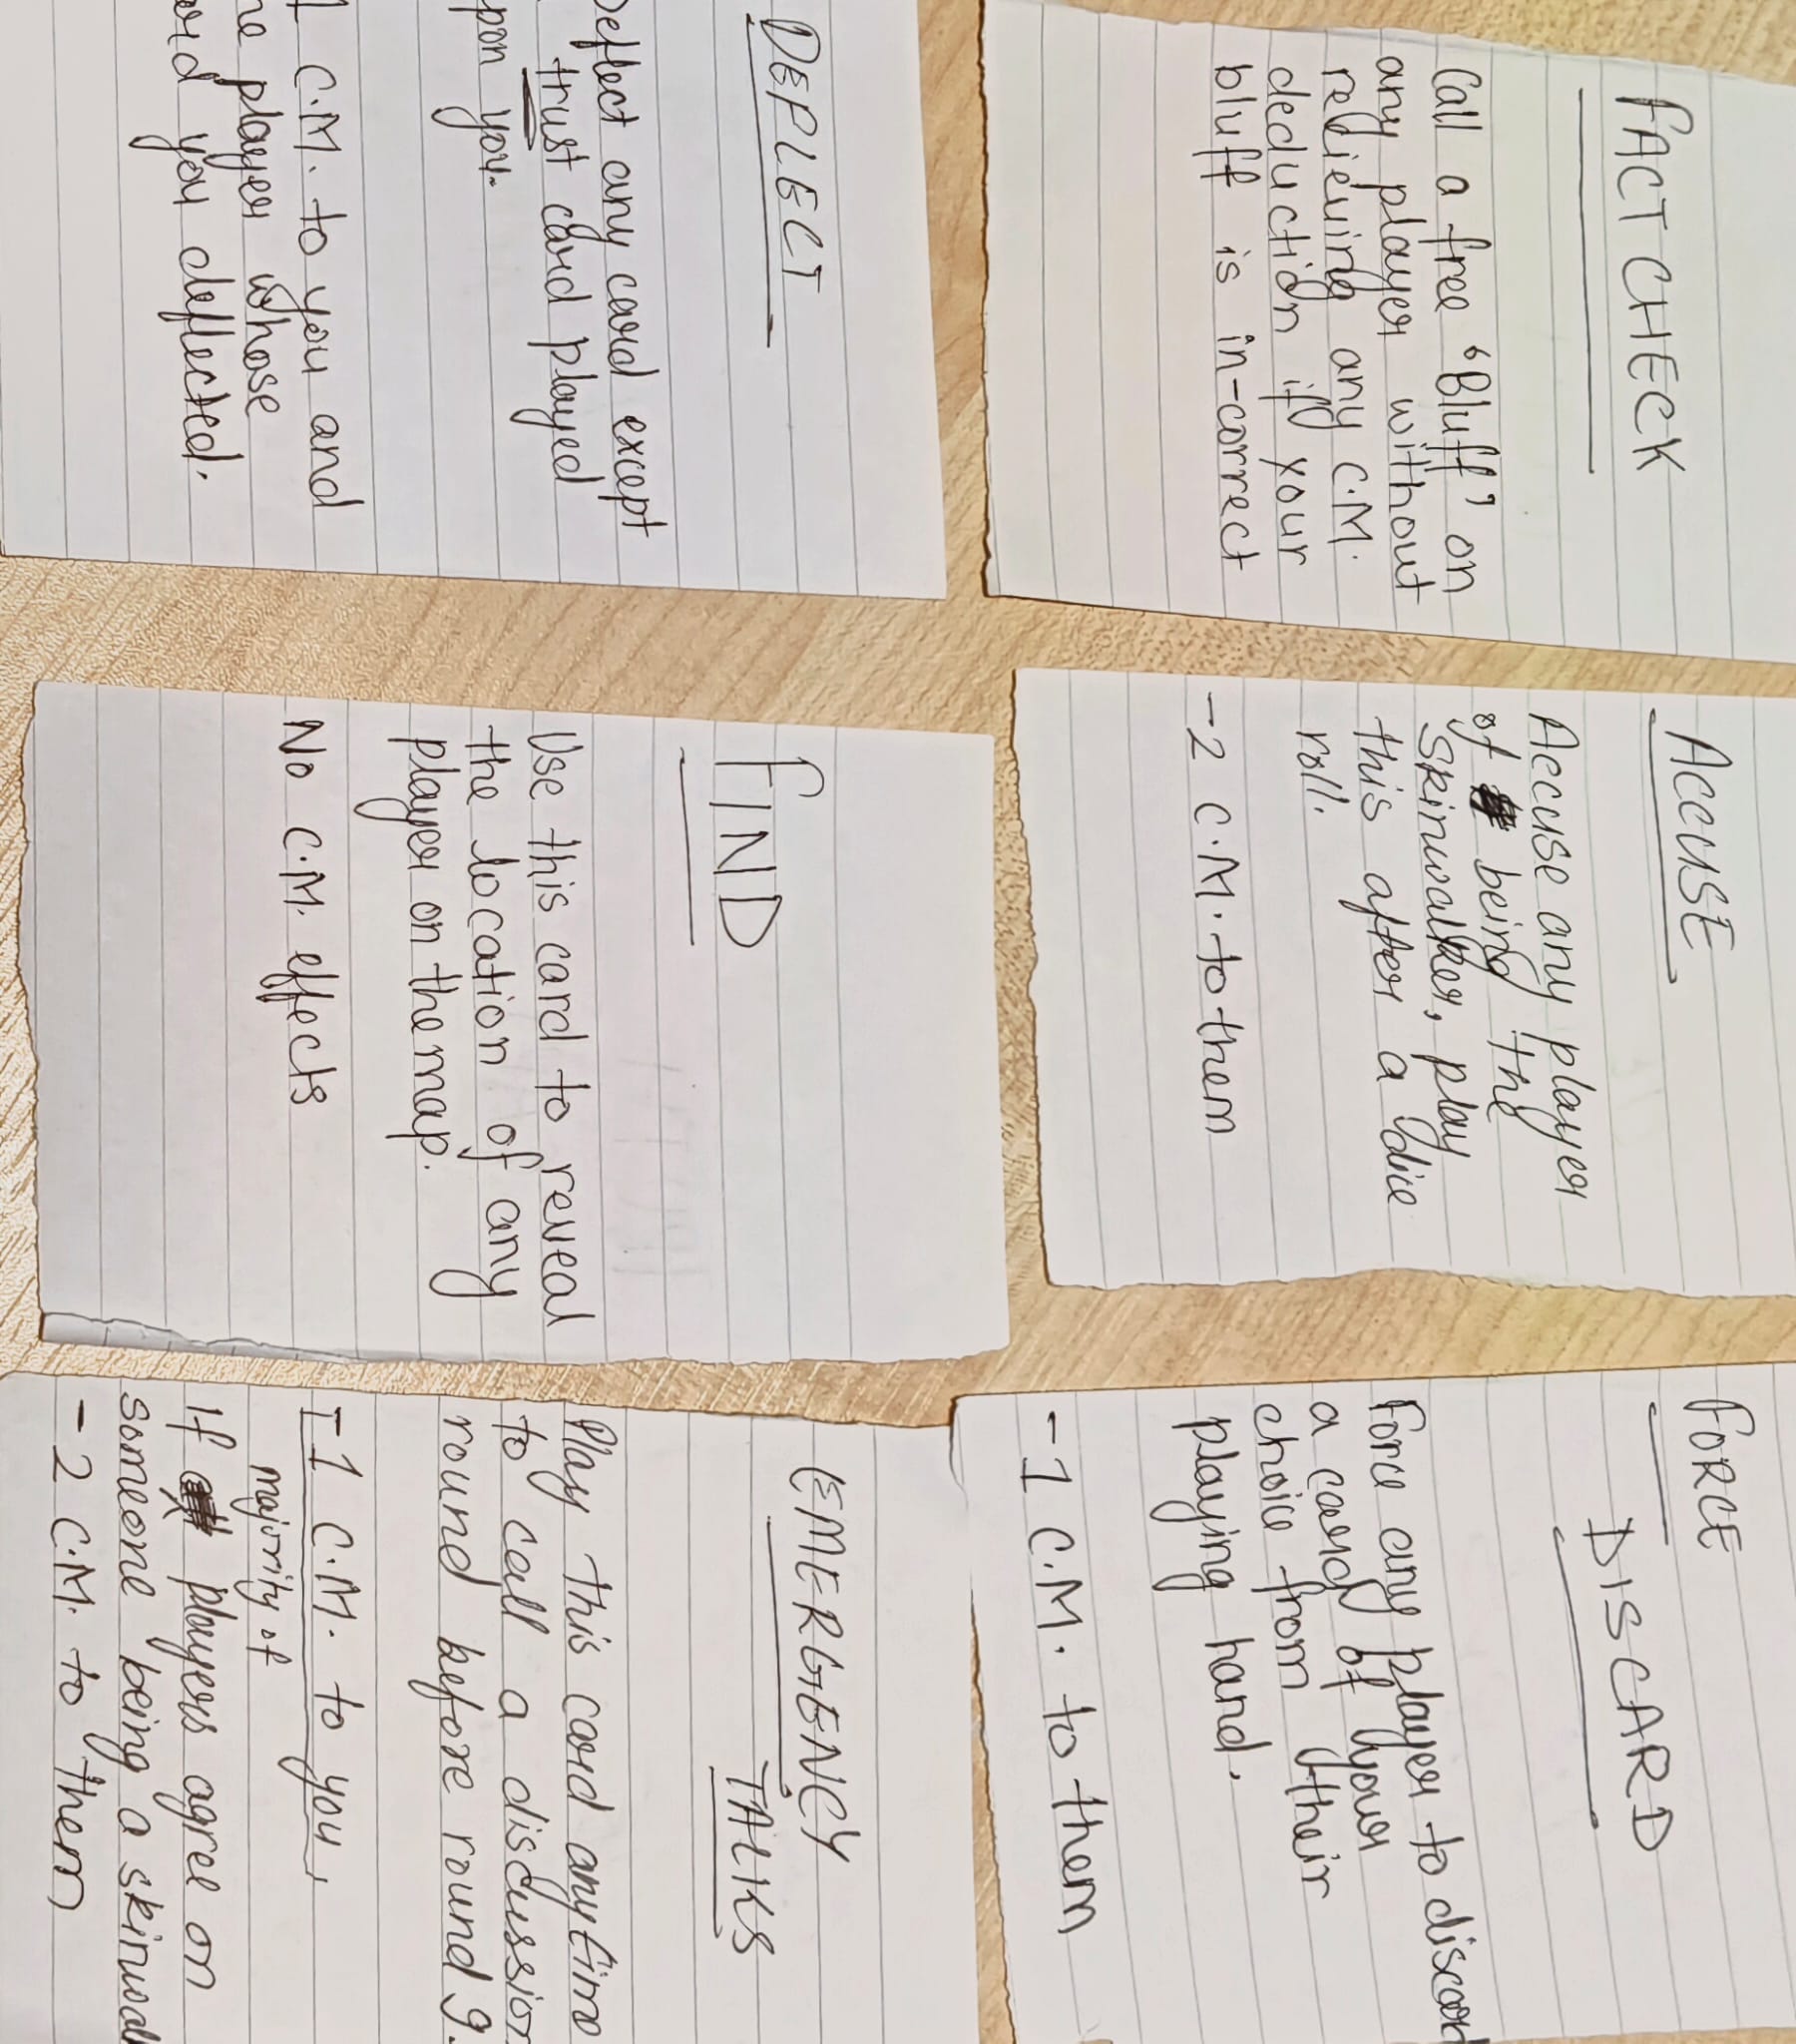 FACT CHECK
Call a free "Bluff" on
any player without
relieving any C.M.
deduction if your
bluff is in-correct
ACCUSE
Accuse any player
of being the
skinwalker, play
this after a dice
roll.
-2 C.M. to them
FORCE
DISCARD
Force any player to discard
a card of your
choice from their
playing hand.
-1 C.M. to them
DEFLECT
Deflect any card except
trust card played
upon you.
1 C.M. to you and
the player whose
card you deflected.
FIND
Use this card to reveal
the location of any
player on the map.
No C.M. effects
EMERGENCY
TALKS
Play this card anytime
to call a discussion
round before round 9.
-1 C.M. to you
majority of
If players agree on
someone being a
-2 C.M. to them